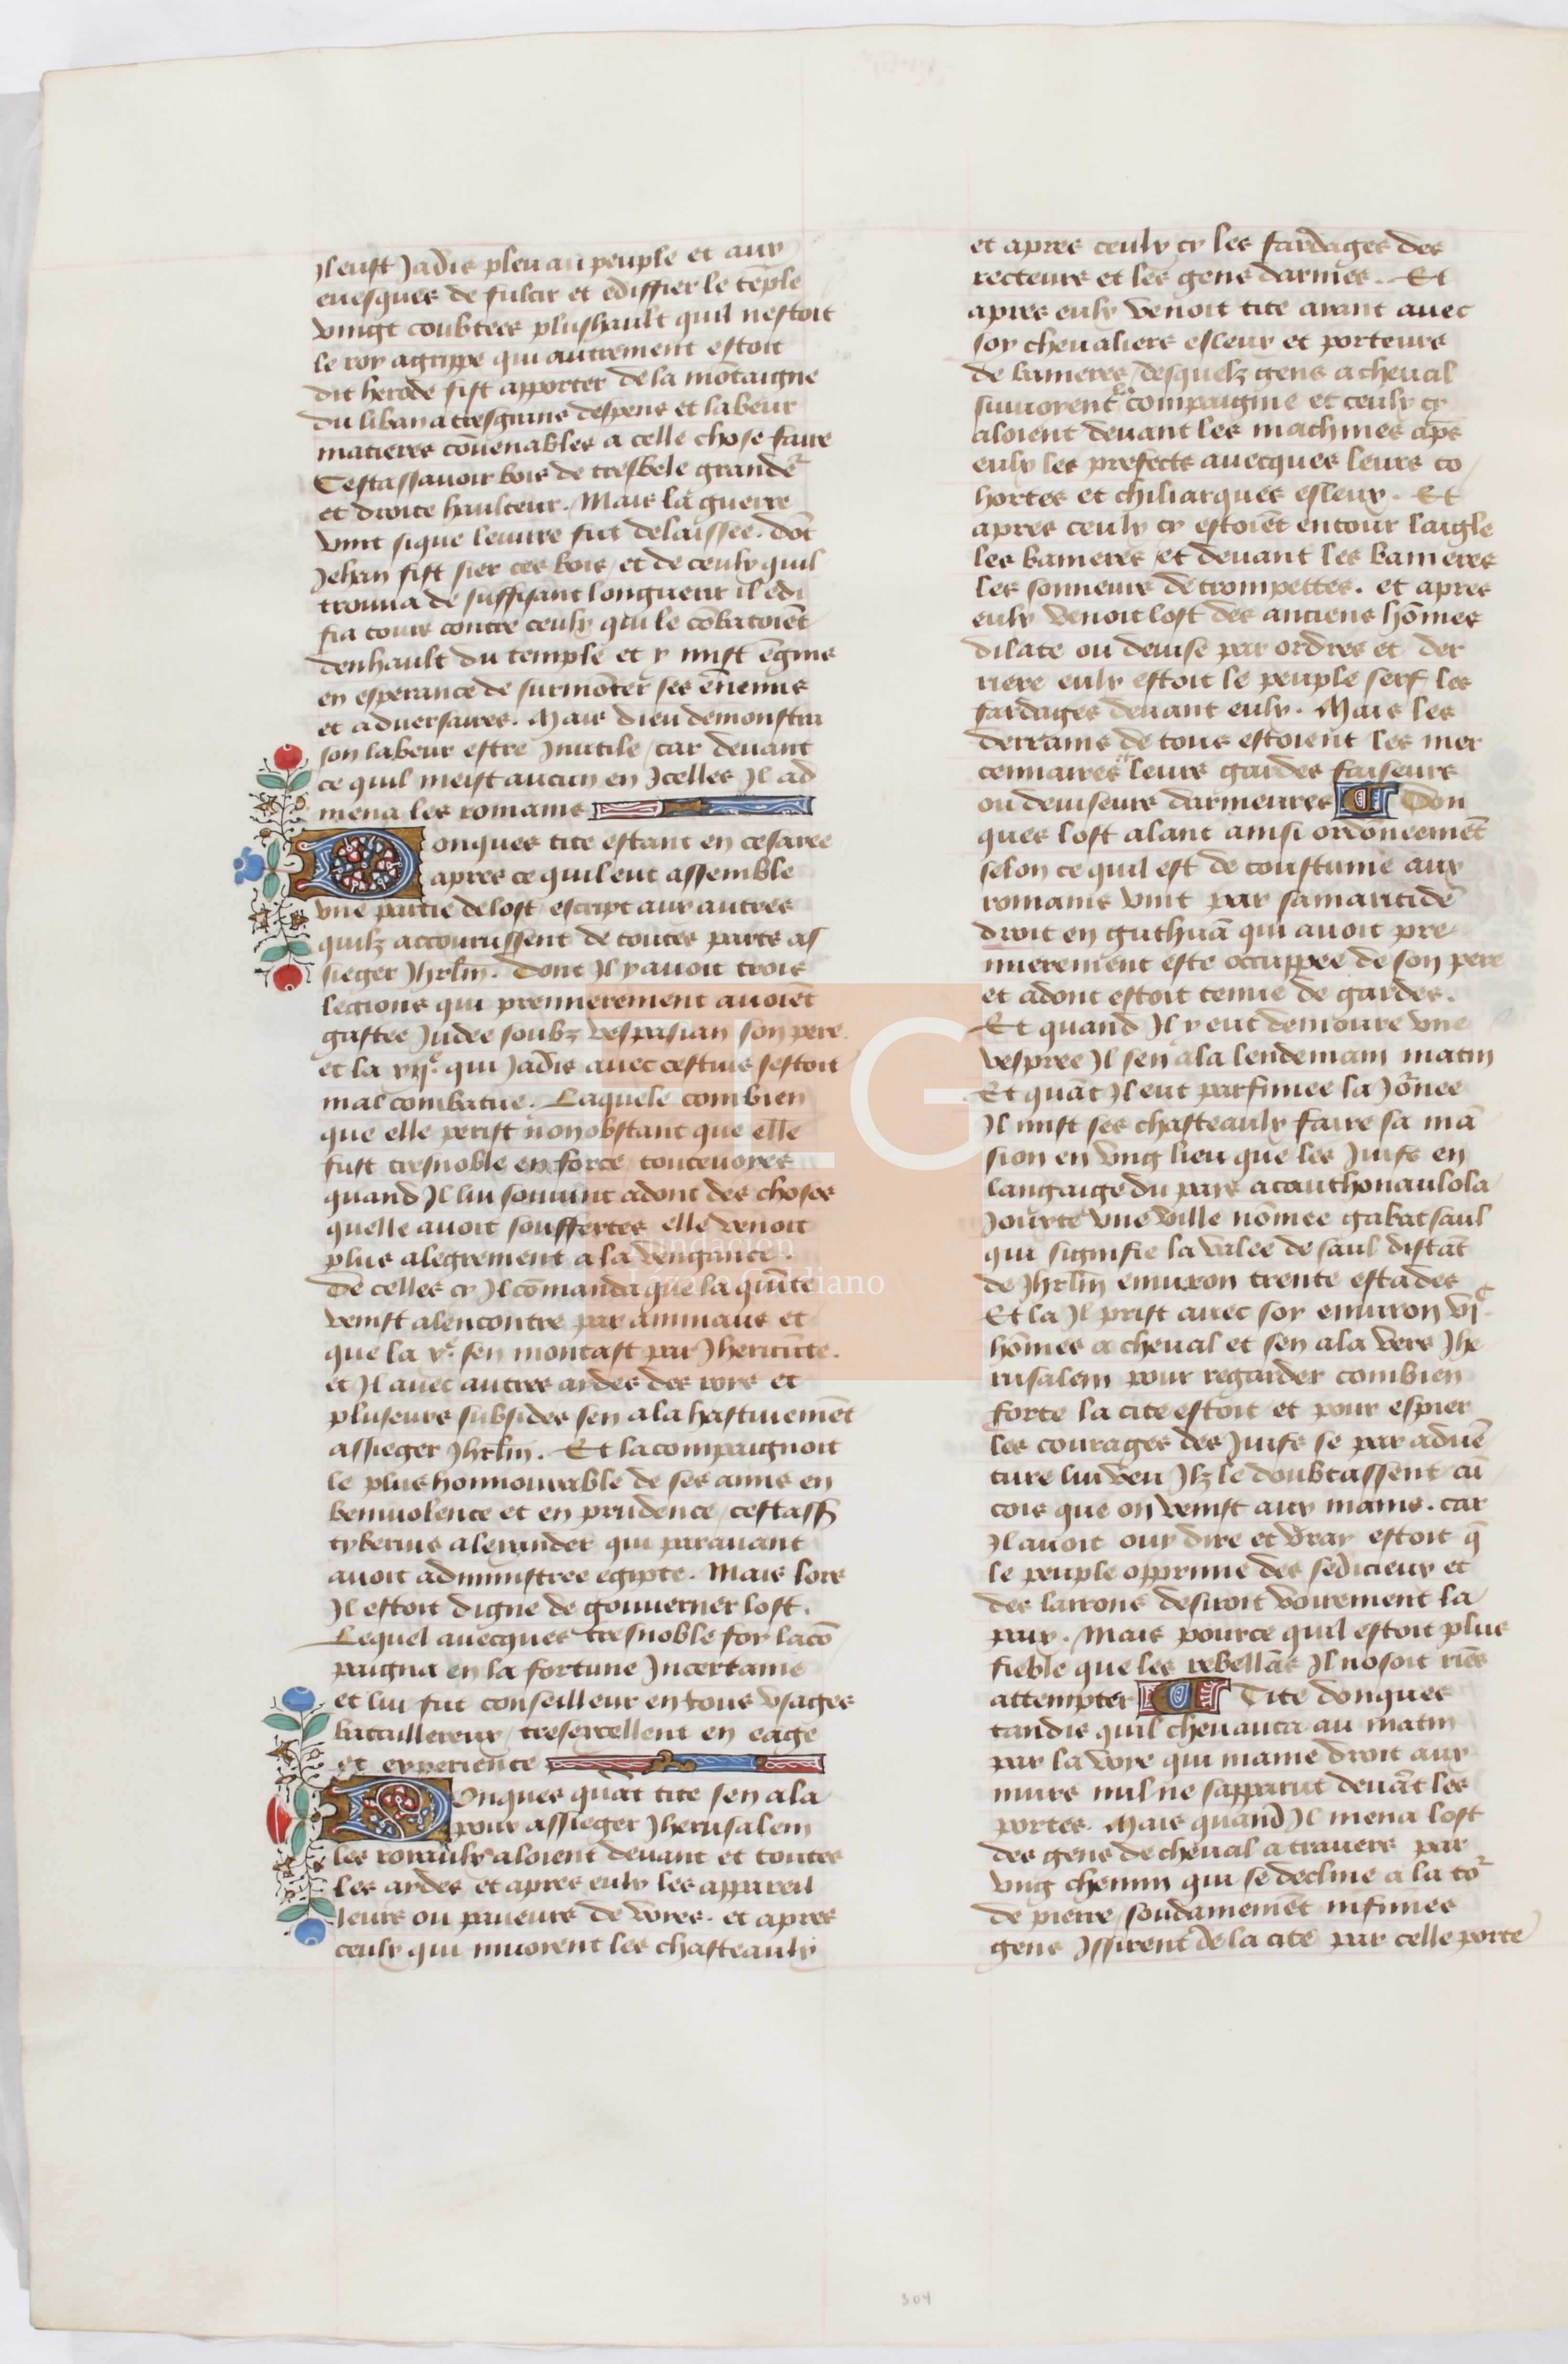 Il eust Jadis pleu au peuple et aux
euesques de fulcir et ediffier le tẽple
vingt coubtees plushault quil nestoit
le roy agrippe qui autrement estoit
dit herode fist apporter de la mõtaigne
du liban a tresgrans despens et labeur
matieres cõuenables a celle chose faire
Cestassauoir bois de tresbele grandeͬ
et droite haulteur. Mais la guerre
vint sique leuure fut delaissee. dõt
Jehan fist sier ces bois et de ceulx quil
trouua de suffisant longueur il edi
fia tours contre ceulx qui le cõbatoiẽt
denhault du temple et y mist ẽgins
en esperance de surmõter ses ẽnemis
et aduersaires. Mais dieu demonstra
son labeur estre Jnutile / car deuant
ce quil meist aucun en Jcelles Il ad
mena les romains
Donques tite estant en cesaree
apres ce quil eut assemble
vne partie de lost escript aux autres
quilz accourussent de toutes pars as
sieger Jhrlm̃. Dont Il y auoit trois
legions qui premierement auoiẽt
gastee Judee soubz vespasian son pere
et la xijᵉ. qui Jadis auec cestius sestoit
mal combatue. Laquele combien
que elle perist nonobstant que elle
fust tresnoble en force toutevoyes
quand Il lui souuint adont des choses
quelle auoit souffertes elle venoit
plus alegrement a la vengance.
De celles cy Il cõmanda que la quĩte
venist alencontre par ammaus et
que la xᵉ. sen montast par Jhericũte.
et Il auec autres aides des roys et
pluseurs subsides sen ala hastiuemẽt
assieger Jhrlm̃. Et lacompaignoit
le plus honnourable de ses amis en
beniuolence et en prudence / cestass̃
tyberius alexander qui parauant
auoit administree egipte. Mais lors
Il estoit digne de gouuerner lost.
Lequel auecques tresnoble foy lacõ
paigna en la fortune Jncertaine
et lui fut conseilleur en tous vsages
bataillereux / tresexcellent en eage
et experience
Donques quãt tite sen ala
pour assieger Jherusalem
les royaulx aloient deuant et toutes
les aides et apres eulx les appareil
leurs ou paueurs de voyes. et apres
ceulx qui muoyent les chasteaulx
et apres ceulx cy les fardages des
recteurs et les gens darmes. Et
apres eulx venoit tite ayant auec
soy cheualiers esleux et porteurs
de banieres / desquelz gens a cheual
suiuoyent ͤ compaignie et ceulx cy
aloient deuant les machines ap̃s
eulx les prefects auecques leurs co
hortes et chiliarques esleux. Et
apres ceulx cy estoiẽt entour laigle
les banieres et deuant les banieres
les sonneurs de trompettes. et apres
eulx venoit lost des anciens hõmes
dilate ou deuise par ordres et der
riere eulx estoit le peuple serf les
fardages deuant eulx. Mais les
derrains de tous estoient les mer
cennaires leurs gardes faiseurs
ou deuiseurs darmeures Don
ques lost alant ainsi ordõneemẽt
selon ce quil est de coustume aux
romains vint par samaritidẽ
droit en guthnã qui auoit pre
mierement este occuppee de son pere
et adont estoit tenue de gardes.
Et quand Il y eut demoure vne
vespree Il sen ala lendemain matin
Et quãt Il eut parfinee la Jõnee
Il mist ses chasteaulx faire sa mã
sion en vng lieu que les Juifs en
langaige du pays acauthonaulola
Jouxte vne ville nõmee gabatsaul
qui signifie la valee de saul distãt
de Jhrlm̃ enuiron trente estades
Et la Il prist auec soy enuiron vjᶜ
hõmes a cheual et sen ala vers Jhe
rusalem pour regarder combien
forte la cite estoit et pour espier
les courages des Juifs se par aduẽ
ture lui veu Ilz le doubtassent ãi
cois que on venist aux mains. car
Il auoit ouy dire et vray estoit q̃
le peuple opprime des sedicieux et
des larrons desiroit voirement la
paix. Mais pource quil estoit plus
fieble que les rebellãs Il nosoit riẽs
attempter Tite donques
tandis quil cheuauca au matin
par la voye qui maine droit aux
murs nul ne sapparut deuãt les
portes. Mais quand Il mena lost
des gens de cheual a trauers par
vng chemin qui se decline a la toͬ
de pierre / soudainemẽt infinies
gens Issirent de la cite par celle porte
304
Fundación
Lázaro Galdiano